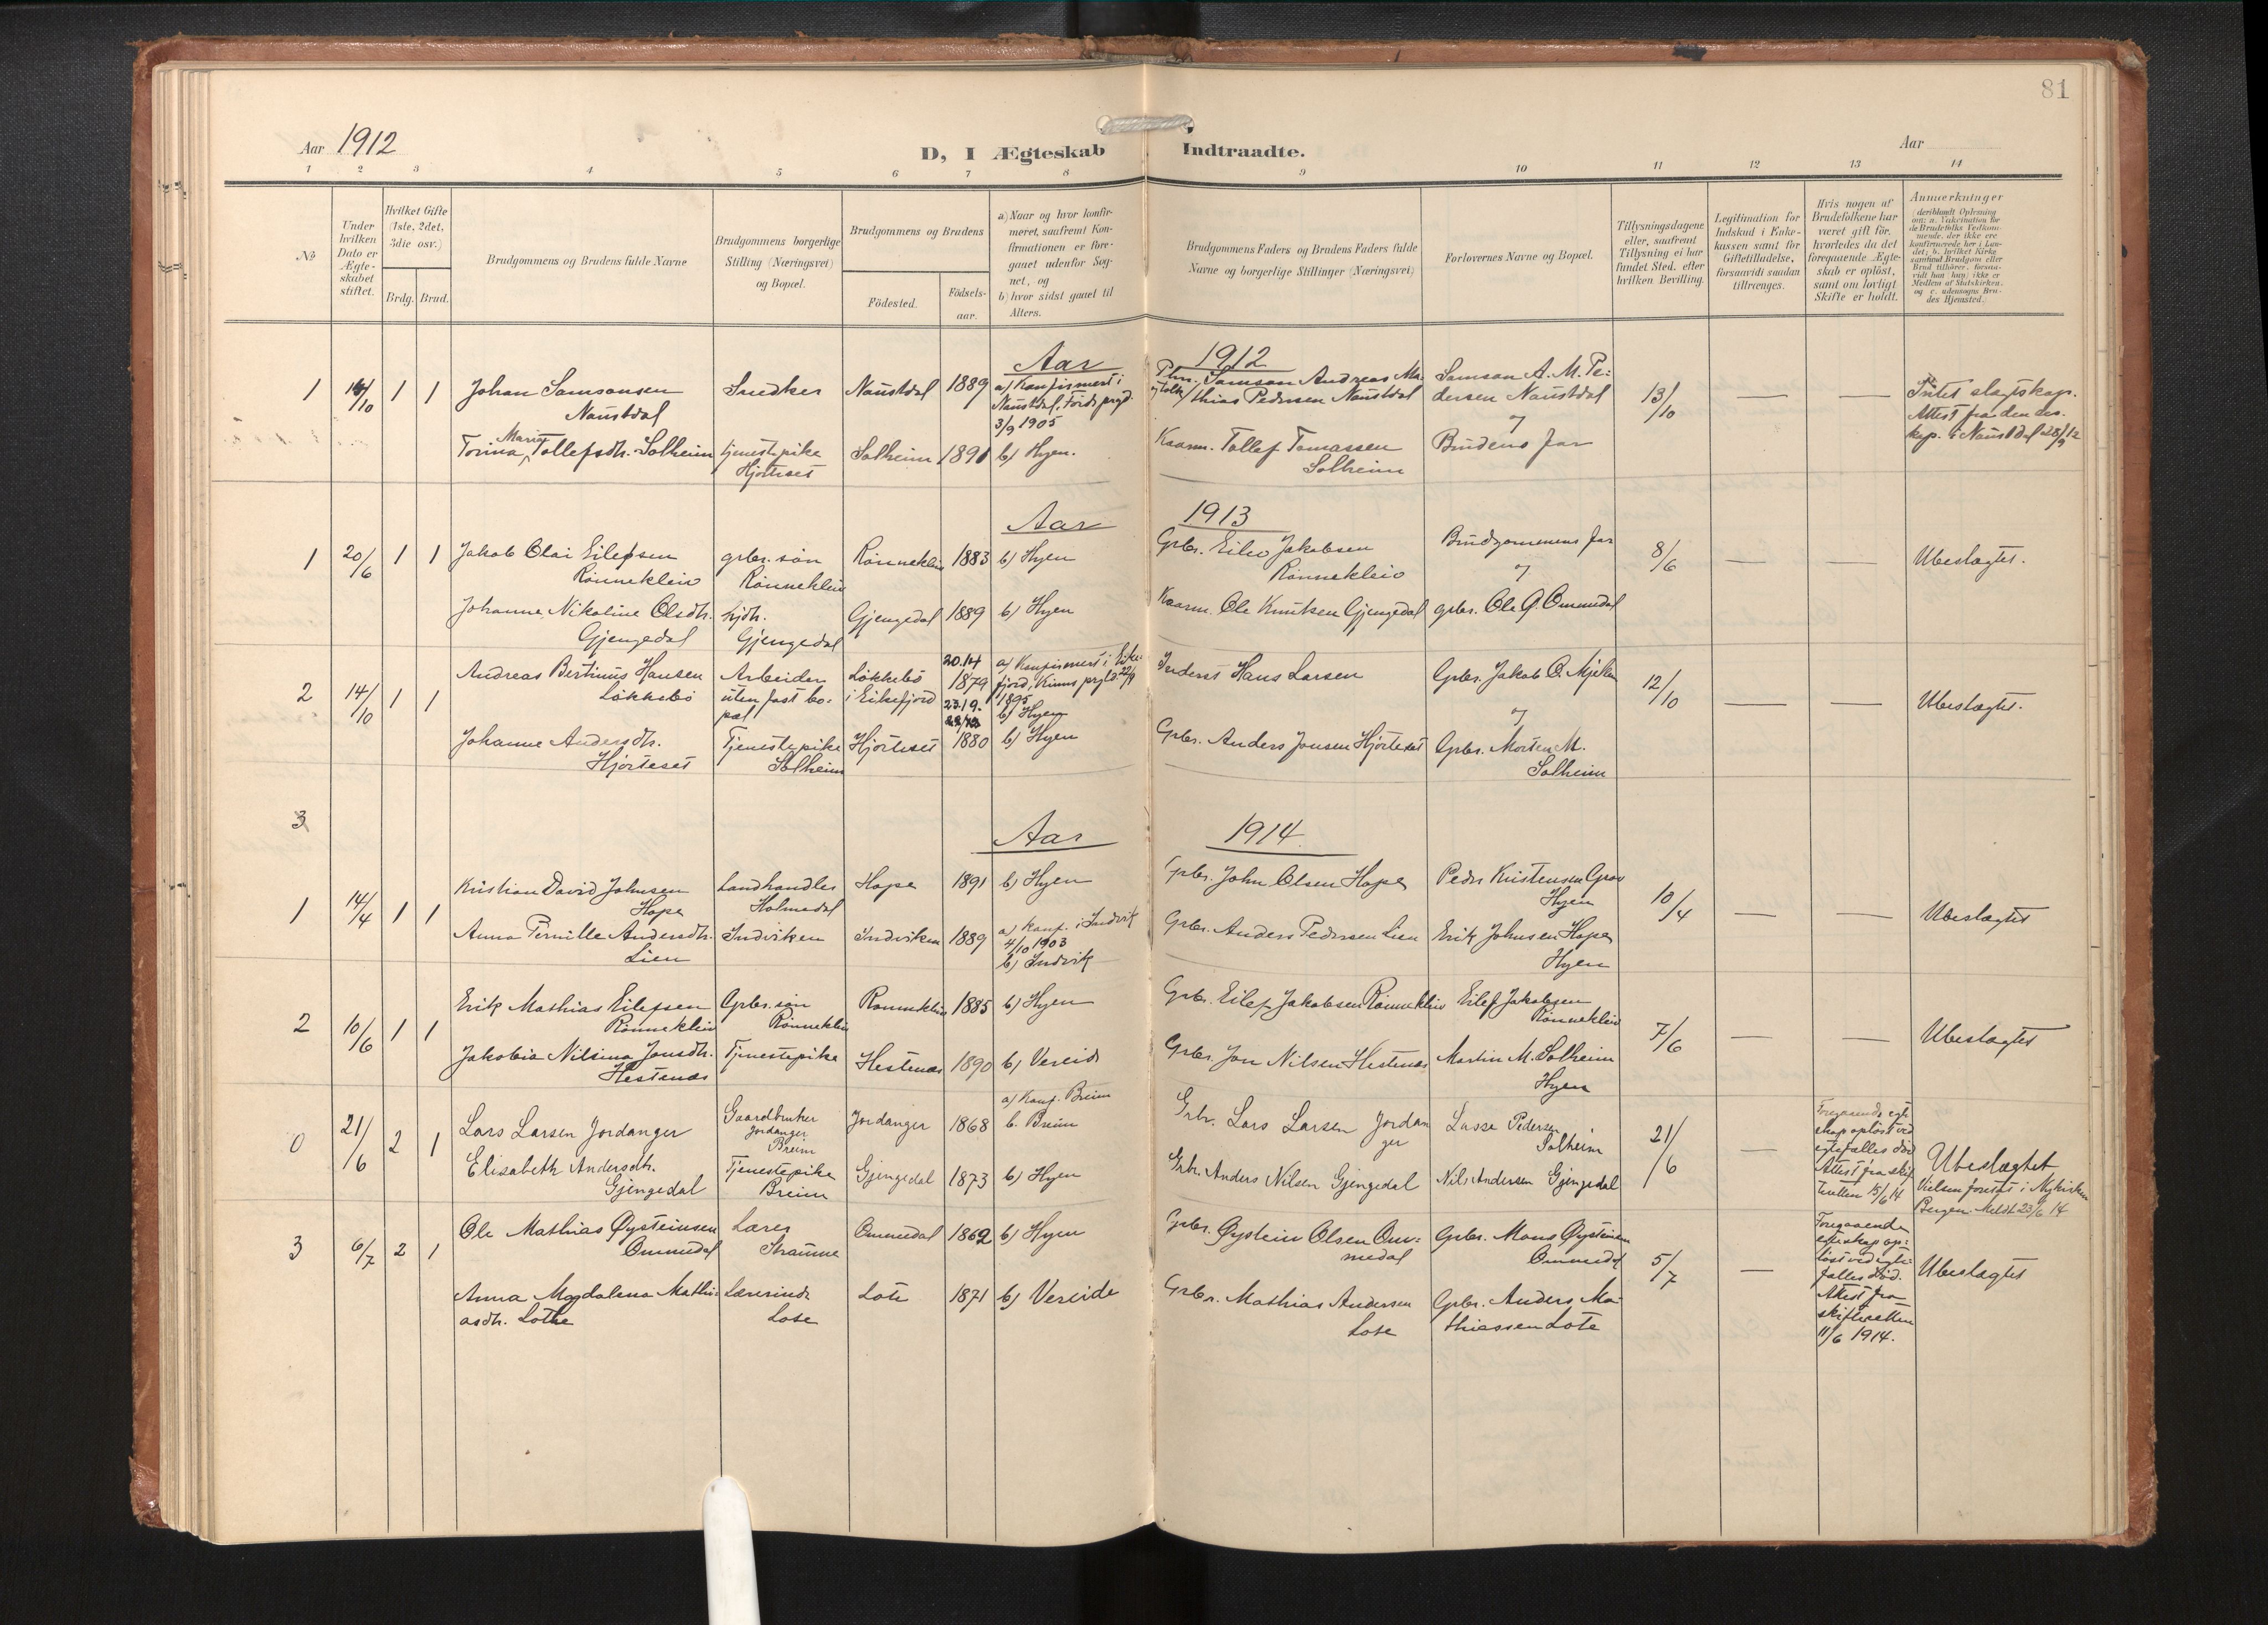 81
Aar 1912
D, I Ægteskab Indtraadte.
Aar
1 2 3 4 5 6 7 8 9 10 11 12 13 14
No
Under hvilken Dato er Ægteskabet stiftet.
Hvilket Gifte (1ste, 2det, 3die osv.)
Brdg. Brud.
Brudgommens og Brudens fulde Navne
Brudgommens borgerlige Stilling (Næringsvei) og Bopæl.
Brudgommens og Brudens
Födested.
Födselsaar.
a) Naar og hvor konfirmeret, saafremt Konfirmationen er foregaaet udenfor Sognet, og
b) hvor sidst gaaet til Alters.
Brudgommens Faders og Brudens Faders fulde Navne og borgerlige Stillinger (Næringsvei)
Forlovernes Navne og Bopæl.
Tillysningsdagene eller, saafremt Tillysning ei har fundet Sted, efter hvilken Bevilling.
Legitimation for Indskud i Enkekassen samt for Giftetilladelse, forsaavidt saadan tiltrænges.
Hvis nogen af Brudefolkene har været gift før, hvorledes da det foregaaende Ægteskab er oplöst, samt om lovligt Skifte er holdt.
Anmærkninger
(deriblandt Oplysning om: a. Vakcination for de Brudefolks Vedkommende, der ikke ere konfirmerede her i Landet; b. hvilket Kirkesamfund Brudgom eller Brud tilhører, forsaavidt han (hun) ikke er Medlem af Statskirken, og c. udensogns Brudes Hjemsted.)
Aar 1912
1 1 1
/10
Johan Samsonsen
Naustdal
Snedker
Naustdal
1889
a) Konfirmert i
Naustdal, Förde prgd.
3/9 1905
Samson Andreas Ma-
thias Pedersen Naustdal
Samson A. M. Pe-
dersen Naustdal
og
13/10
Intet slagtskap.
Attest fra den
i Naustdal 28/9 12
Torina Marie Tollefsdtr. Solheim
tjenestepike
Hjorteset
Solheim
1891
b) Hyen.
Kaarm. Tollef Tomassen
Solheim
Brudens far
Aar 1913
1 20/6 1 1
Jakob Olai Eilefsen
Rönnekleiv
grbr. sön
Rönnekleiv
Rönnekleiv
1883
b) Hyen
Grbr. Eilev Jakobsen
Rönnekleiv
Brudgommens far
og
8/6
Ubeslægtet.
Johanne Nikoline Olsdtr.
Gjengedal
Gjengedal
Gjengedal
1889
b) Hyen
Kaarm. Ole Knutsen Gjengedal
grbr. Ole G. Ommedal
2 14/10 1 1
Andreas Bertinus Hansen
Løkkebø
Arbeider
uten fast bo-
pæl
Løkkebø
i Eikefjord
20.14
1879
a) Konfirmert i Eike-
fjord, Kinns prgld 22/9
1895
b) Hyen
Inderst Hans Larsen
Grbr. Jakob O. Mjellem
og
12/10
Ubeslægtet.
Johanne Andersdtr.
Hjorteset
Tjenestepike
Solheim
Hjorteset
23.19.
1880
b) Hyen
Grbr. Anders Jonsen Hjorteset
Grbr. Morten M.
Solheim
3
Aar 1914.
1 14/4 1 1
Kristian David Johnsen
Hope
Landhandler
Holmedal
Hope
1891
b) Hyen
Grbr. John Olsen Hope
Peder Kristensen Grov
Hyen
10/4
Ubeslægtet
Anna Pernille Andersdtr.
Lien
Indviken
Indviken
1889
a) Konf. i Indvik
4/10 1903
b) Indvik
Grbr. Anders Pedersen Lien
Erik Johnsen Hope
Hyen
2 10/6 1 1
Erik Mathias Eilefsen
Rönnekleiv
Grbr. sön
Rönnekleiv
Rönnekleiv
1885
b) Hyen
Grbr. Eilef Jakobsen Rönnekleiv
Eilef Jakobsen
Rönnekleiv
7/6
Ubeslægtet
Jakobia Nilsina Jonsdtr.
Hestenæs
Tjenestepike
Hestenæs
1890
b) Vereide
Grbr. Jon Nilsen Hestenæs
Martin M. Solheim
Hyen
0 21/6 2 1
Lars Larsen Jordanger
Gaardbruker
Jordanger
Breim
Jordanger
1868
a) Konf. Breim
b. Breim
Grbr. Lars Larsen Jordan
ger
Lasse Pedersen
Solheim
21/6
Foregaaende egte-
skap oplöst ved
egtefælles död
Attest fra skif-
teretten 15/6 14
Ubeslægtet
Vielsen foretat i Nykirken
Bergen. Meldt 23/6 14
Elisabeth Andersdtr.
Gjengedal
Tjenestepike
Breim
Gjengedal
1873
b) Hyen
Grbr. Anders Nilsen Gjengedal
Nils Andersen Gjengedal
3 6/7 2 1
Ole Mathias Øysteinsen
Ommedal
Lærer
Straume
Ommedal
1862
b) Hyen
Grbr. Øystein Olsen Om-
medal
Grbr. Mons Øysteinsen
Ommedal
5/7
Foregaaende
egteskap op-
löst ved egte-
fælles död.
Attest fra
skifteretten
11/6 1914.
Ubeslægtet
Anna Magdalena Mathi-
asdtr. Lothe
Lærerinde
Lote
Lote
1871
b) Vereide
Grbr. Mathias Andersen
Lote
Grbr. Anders Ma-
thiassen Lote